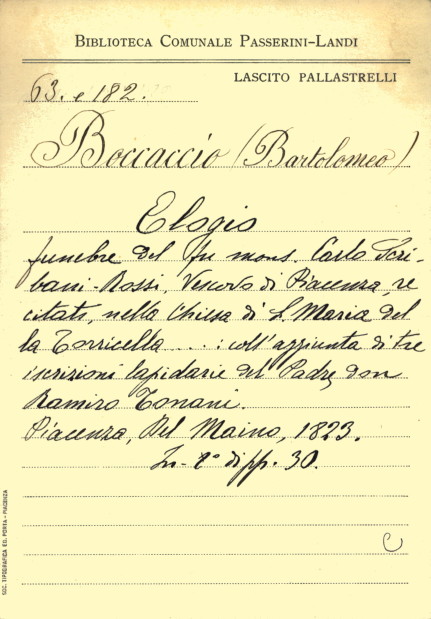 BIBLIOTECA COMUNALE PASSERINI-LANDI
LASCITO PALLASTRELLI
63. e 182.
Boccaccio (Bartolomeo)
Elogio
funebre del fu mons. Carlo Scri-
bani-Rossi, Vescovo di Piacenza, re
citato, nella Chiesa di S. Maria del
la Torricella . . . : coll'aggiunta di tre
iscrizioni lapidarie del Padre don
Ramiro Tonani.
Piacenza, Del Maino, 1823.
In-8° di pp. 30.
C
SOC. TIPOGRAFICA ED. PORTA - PIACENZA